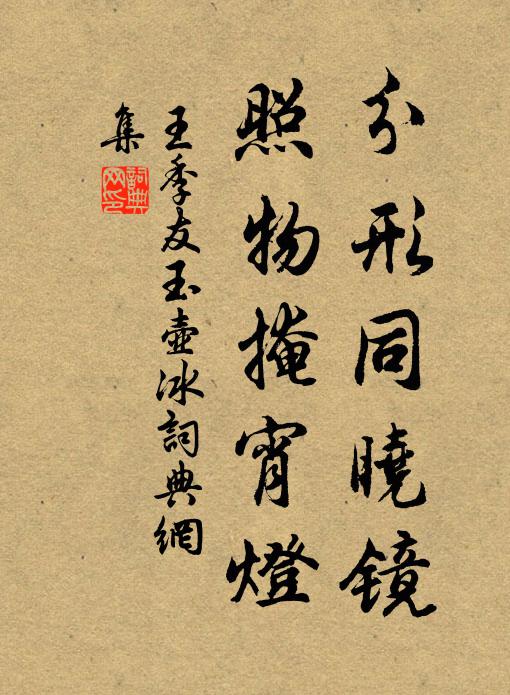 分形同曉鏡
照物掩宵燈
王季友玉壺冰詞典網
集
詞典
网印